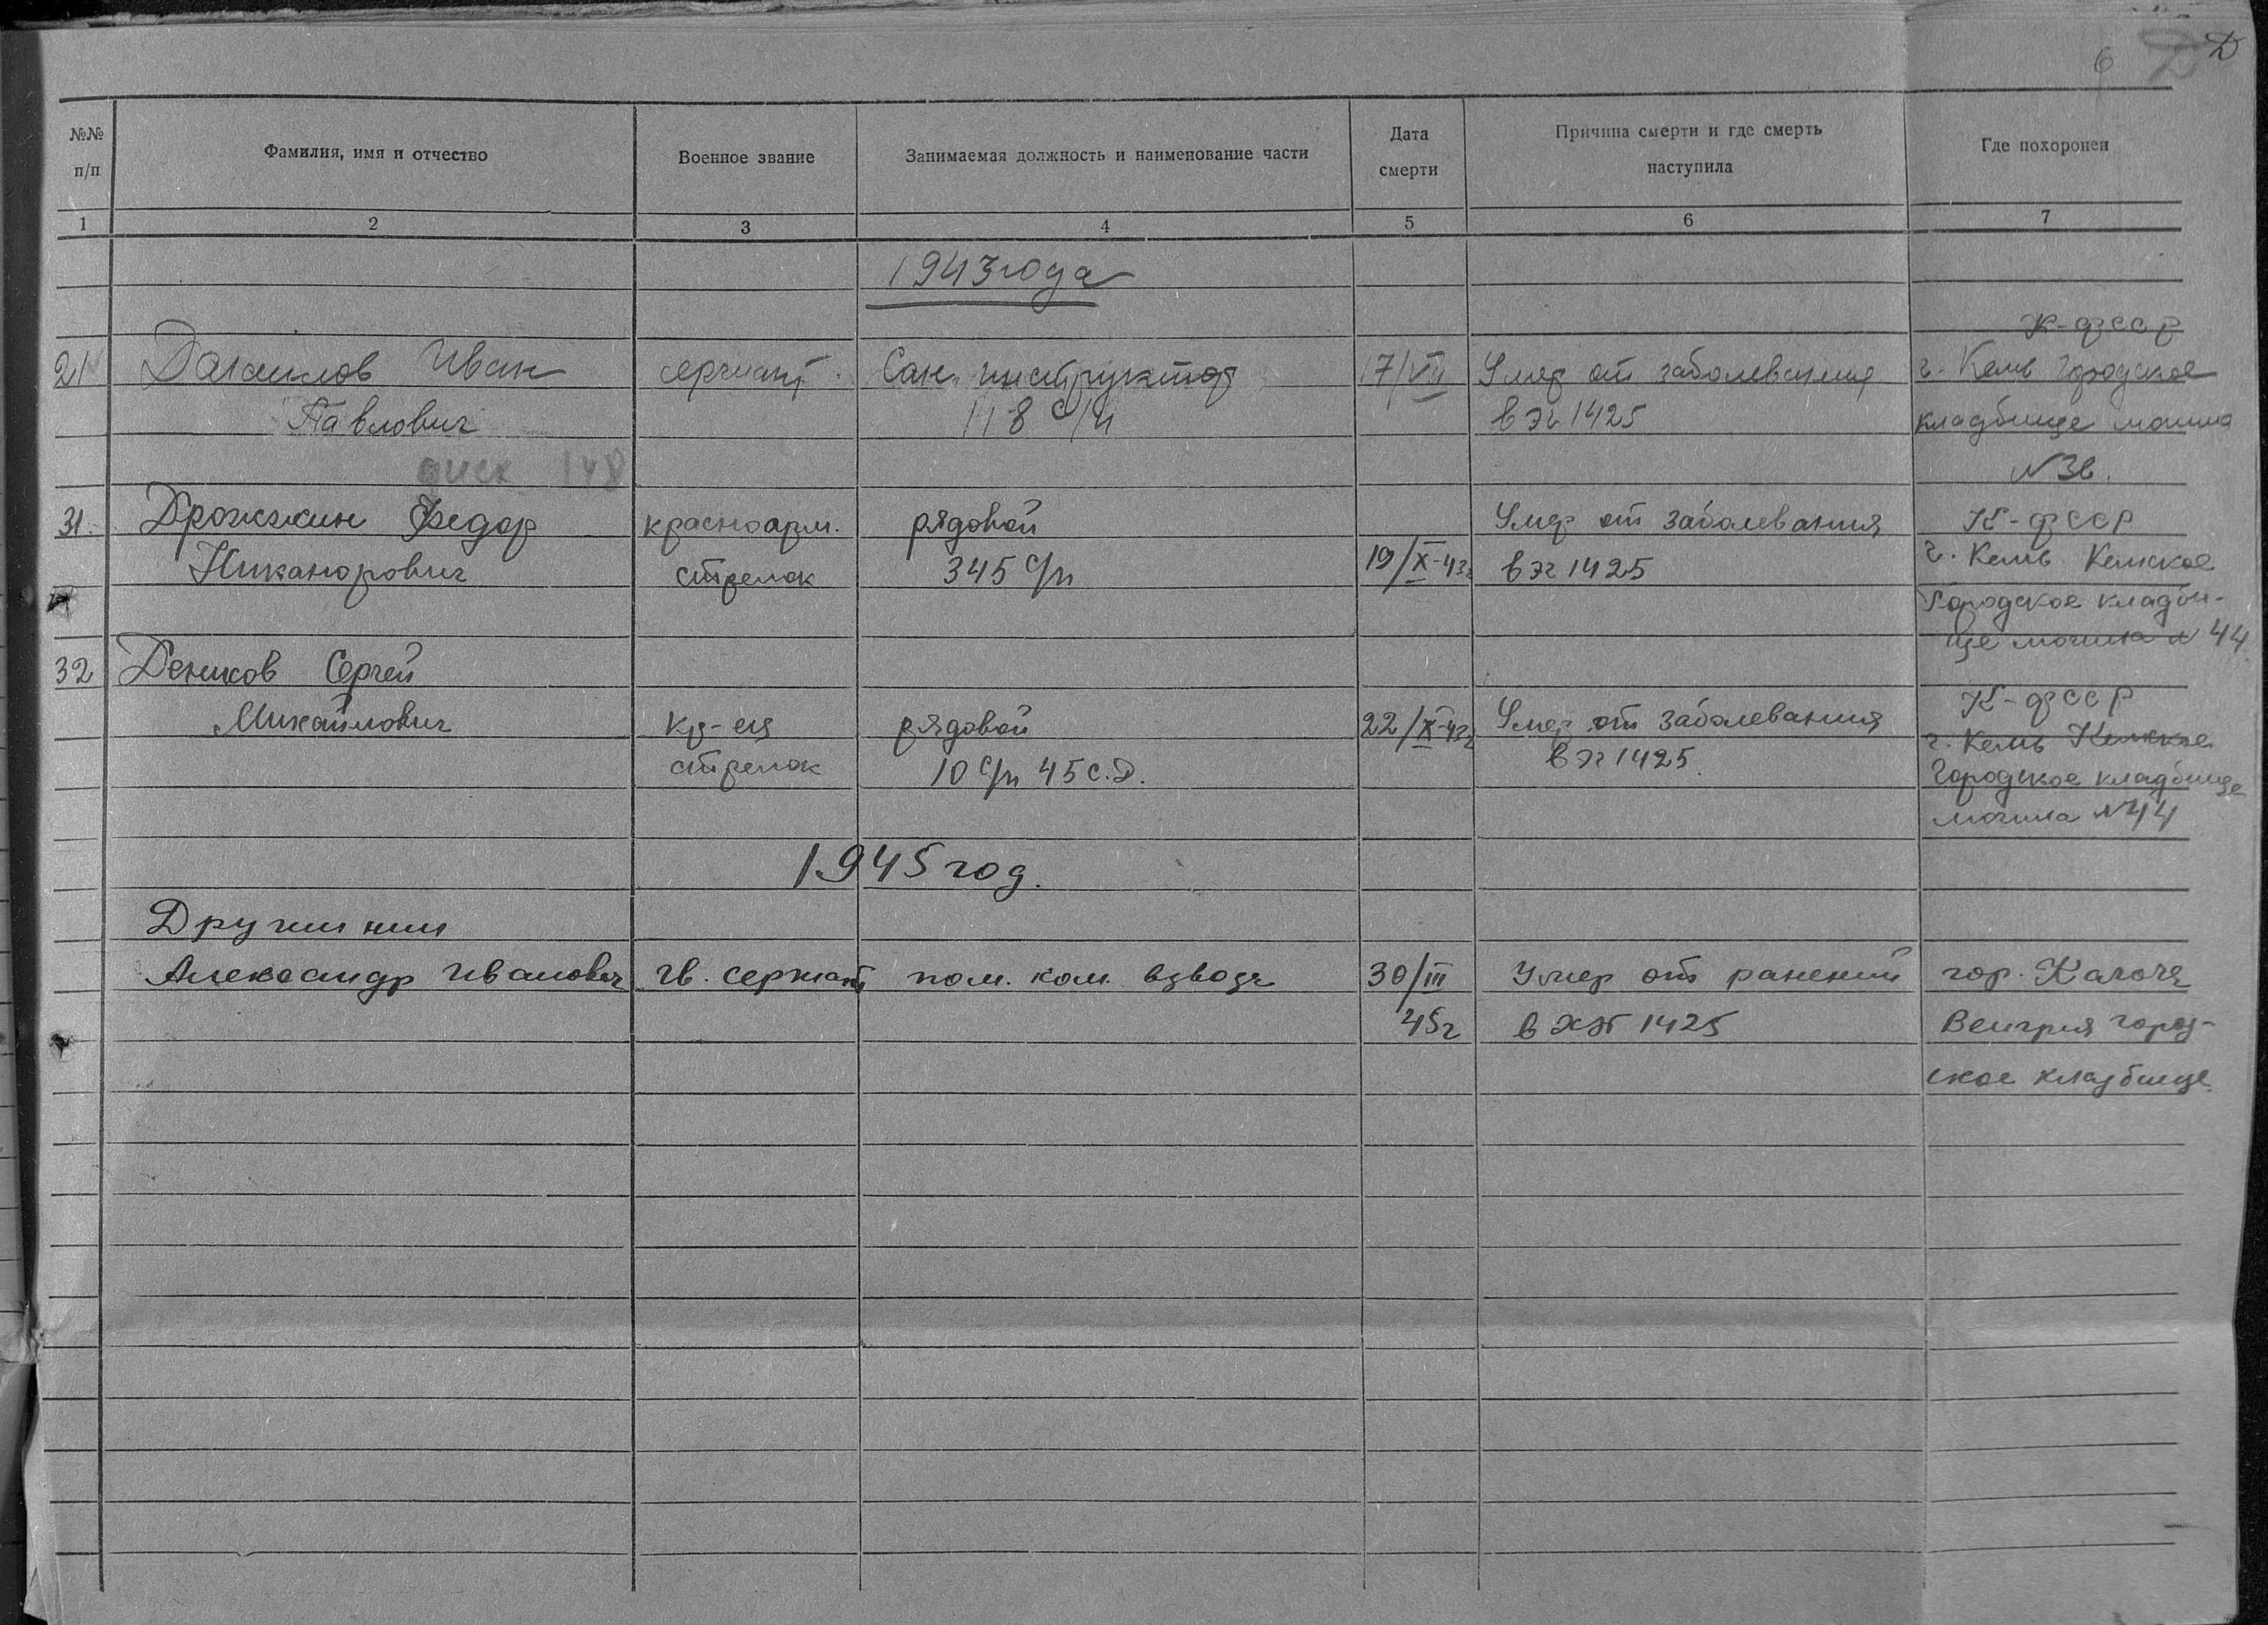 6 Д Д
№№ п/п
Фамилия, имя и отчество
Военное звание
Занимаемая должность и наименование части
Дата смерти
Причина смерти и где смерть наступила
Где похоронен
1 2 3 4 5 6 7
1943 года
К-фССР
21 Данилов Иван сержант Сан. инструктор 17/VII Умер от заболевания г. Кемь Городское
Павлович 118 с/п в эг 1425 кладбище могила
148 №36.
31. Дрожжин Федор красноарм. рядовой Умер от заболевания К-фССР
Никанорович стрелок 345 с/п 19/X-43г в эг 1425 г. Кемь Кемское
Городское кладби-
ще могила № 44
32 Деников Сергей
К-фССР
Михайлович кр-ец рядовой 22/X-43г Умер от заболевания г. Кемь Кемское
стрелок 10 с/п 45 С.Д. в эг 1425. Городское кладбище
могила №44
1945 год.
Дружинин
Александр Иванович гв. сержант пом. ком. взвода 30/III Умер от ранений гор. Калоча
45г в ХЭГ 1425 Венгрия город-
ское кладбище.